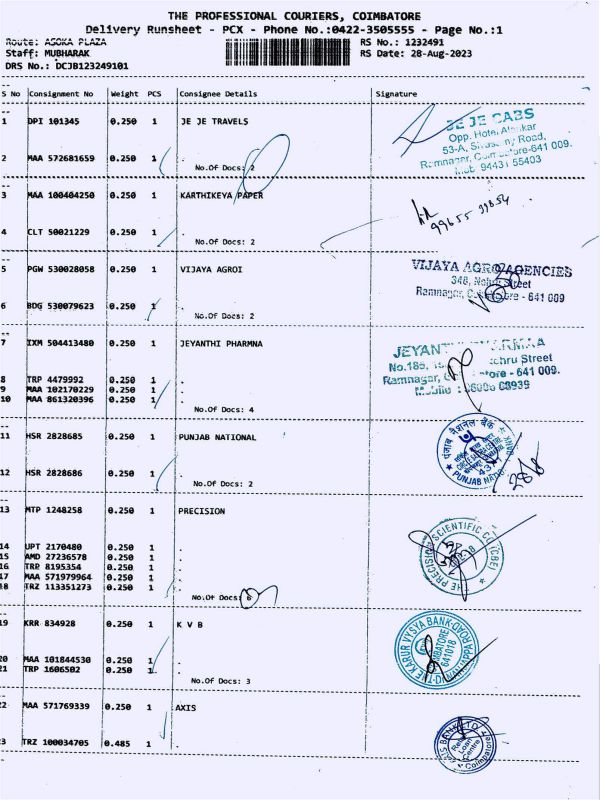 THE PROFESSIONAL COURIERS, COIMBATORE
Delivery Runsheet - PCX - Phone No.:0422-3505555 - Page No.:1
Route: AGOKA PLAZA RS No.: 1232491
Staff: MUBHARAK RS Date: 28-Aug-2023
DRS No.: DCJB123249101
S No Consignment No Weight PCS Consignee Details Signature
1 DPI 101345 0.250 1 JE JE TRAVELS
JE JE CABS
Opp. Hotel Alankar
53-A, Road,
Ramnagar, Coimbatore-641 009.
Mob: 94431 55403
2 MAA 572681659 0.250 1 .
No.Of Docs: 2
3 MAA 100404250 0.250 1 KARTHIKEYA PAPER
4 CLT 50021229 0.250 1 .
No.Of Docs: 2
5 PGW 530028058 0.250 1 VIJAYA AGROI
VIJAYA AGRO AGENCIES
346, Nehru Street
Ramnagar, Coimbatore - 641 009
6 BDG 530079623 0.250 1 .
No.Of Docs: 2
7 IXM 504413480 0.250 1 JEYANTHI PHARMNA
JEYANTHI PHARMAA
Nehru Street
Ramnagar, Coimbatore - 641 009.
8 TRP 4479992 0.250 1 .
9 MAA 102170229 0.250 1 .
10 MAA 861320396 0.250 1 .
No.Of Docs: 4
11 HSR 2828685 0.250 1 PUNJAB NATIONAL
पंजाब नैशनल बैंक
PUNJAB NATIONAL BANK
12 HSR 2828686 0.250 1 .
No.Of Docs: 2
13 MTP 1248258 0.250 1 PRECISION
THE PRECISION SCIENTIFIC CO (CBE)
14 UPT 2170480 0.250 1 .
15 AMD 27236578 0.250 1 .
16 TRP 8195354 0.250 1 .
17 MAA 571979964 0.250 1 .
18 TRZ 113351273 0.250 1 .
No.Of Docs: 6
19 KRR 834928 0.250 1 K V B
THE KARUR VYSYA BANK
COIMBATORE
641018
20 MAA 101844530 0.250 1 .
21 TRP 1606502 0.250 1 .
No.Of Docs: 3
22 MAA 571769339 0.250 1 AXIS
AXIS BANK LTD
Retail
Loan
Centre
Coimbatore
23 TRZ 100034705 0.485 1 .